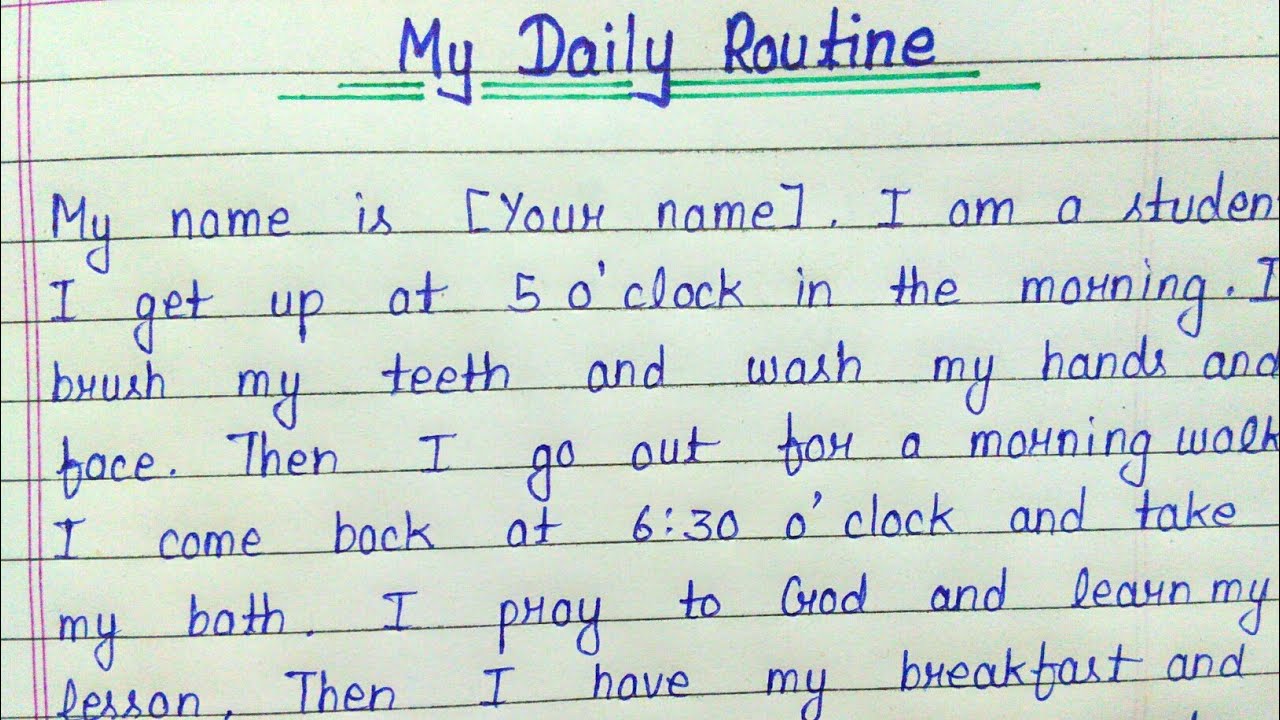 My Daily Routine
My name is [Your name]. I am a studen
I get up at 5 o'clock in the morning. I
brush my teeth and wash my hands and
face. Then I go out for a morning walk
I come back at 6:30 o'clock and take
my bath. I pray to God and learn my
lesson. Then I have my breakfast and